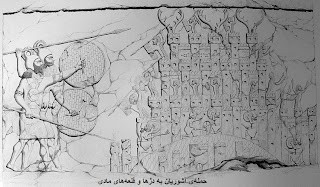 حمله‌ی آشوریان به دژها و قلعه‌های مادی